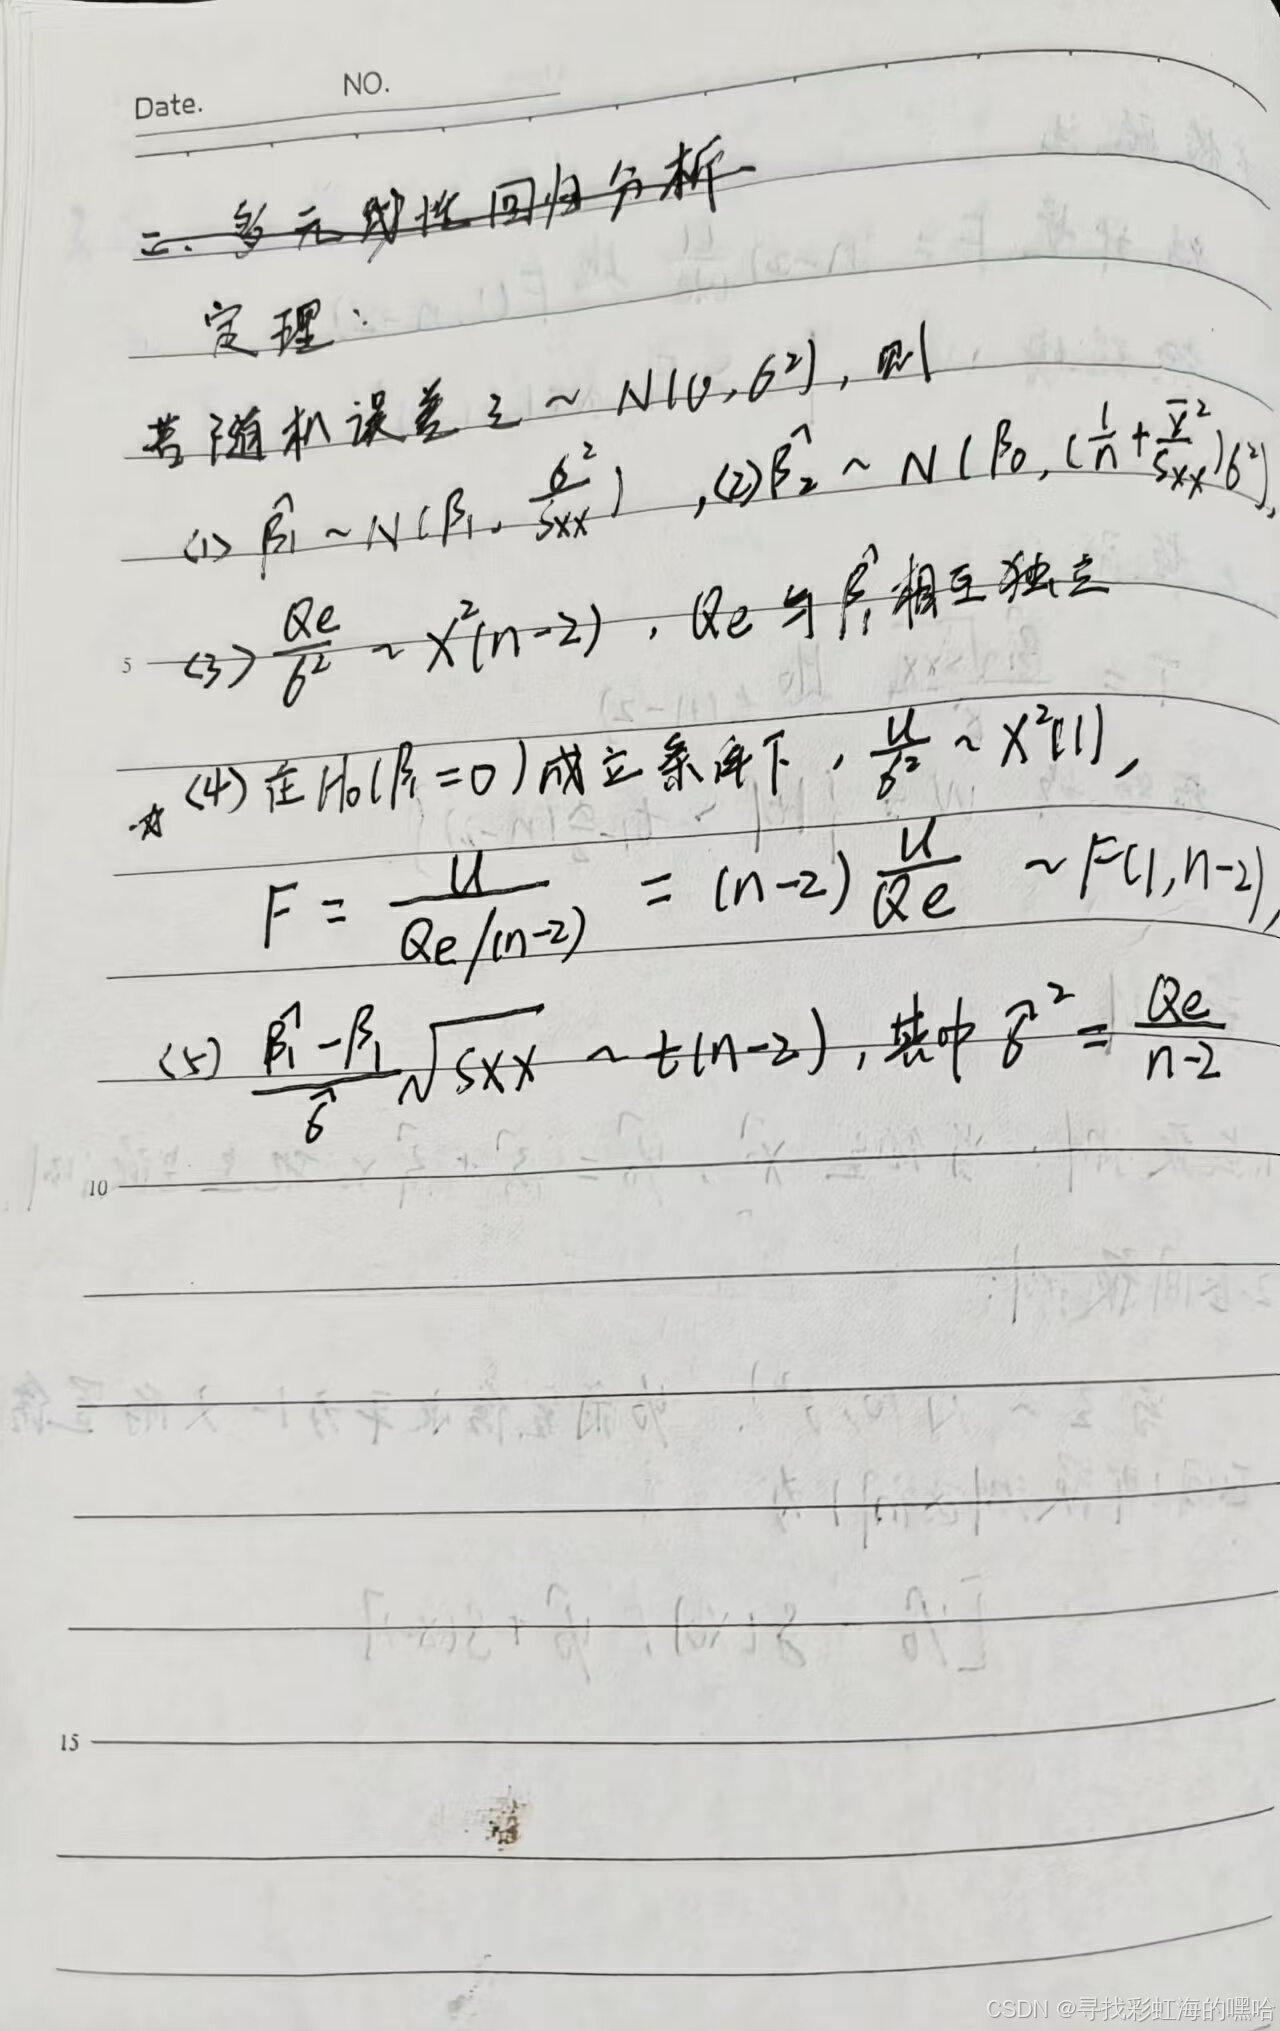 Date. NO.
二、多元线性回归分析
定理：
若随机误差 ε ~ N(0, σ²)，则
(1) β̂₁ ~ N(β₁, σ²/Sxx)，(2) β̂₂ ~ N(β₀, (1/n + x̄²/Sxx)σ²)，
5 (3) Qe/σ² ~ χ²(n-2)，Qe与β̂₁相互独立
☆ (4) 在H₀(β₁=0)成立条件下，U/σ² ~ χ²(1)，
F = U/(Qe/(n-2)) = (n-2) U/Qe ~ F(1, n-2)，
(5) (β̂₁-β₁)/σ̂ √Sxx ~ t(n-2)，其中 σ̂² = Qe/(n-2)
10
15
CSDN @寻找彩虹海的嘿哈